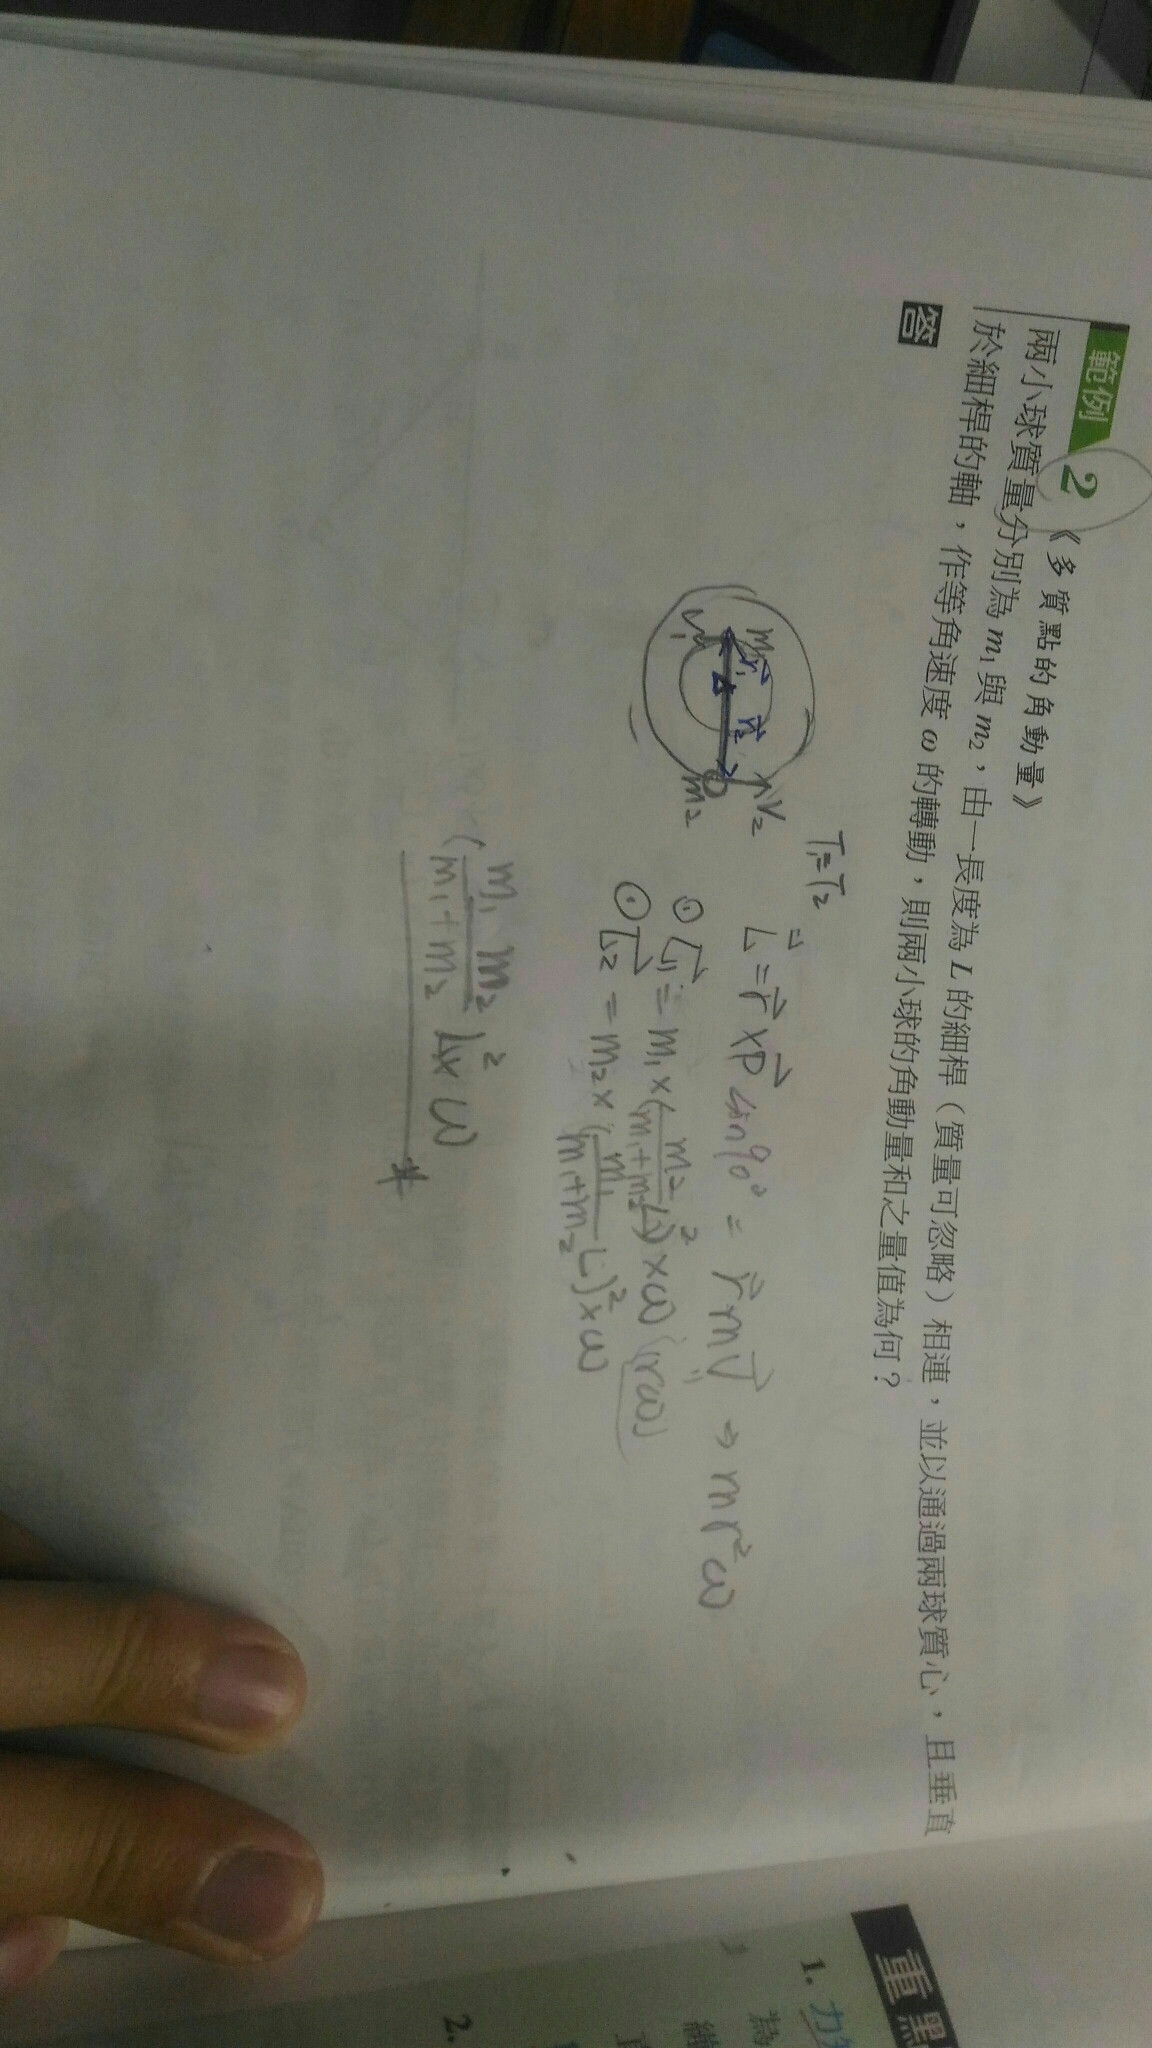 範例 2 《多質點的角動量》
兩小球質量分別為 m₁ 與 m₂，由一長度為 L 的細桿（質量可忽略）相連，並以通過兩球質心，且垂直
於細桿的軸，作等角速度 ω 的轉動，則兩小球的角動量和之量值為何？
答
T₁=T₂
m₁ r₁ r₂ V₂
V₁ m₂
L⃗ = r⃗ × P⃗ sin90° = r⃗ m V⃗ ⇒ m r² ω
⊙ L⃗₁ = m₁ × (m₂/(m₁+m₂) L)² × ω (rω)
⊙ L⃗₂ = m₂ × (m₁/(m₁+m₂) L)² × ω
(m₁ m₂)/(m₁+m₂) L² × ω
重點
1. 力
為
2.